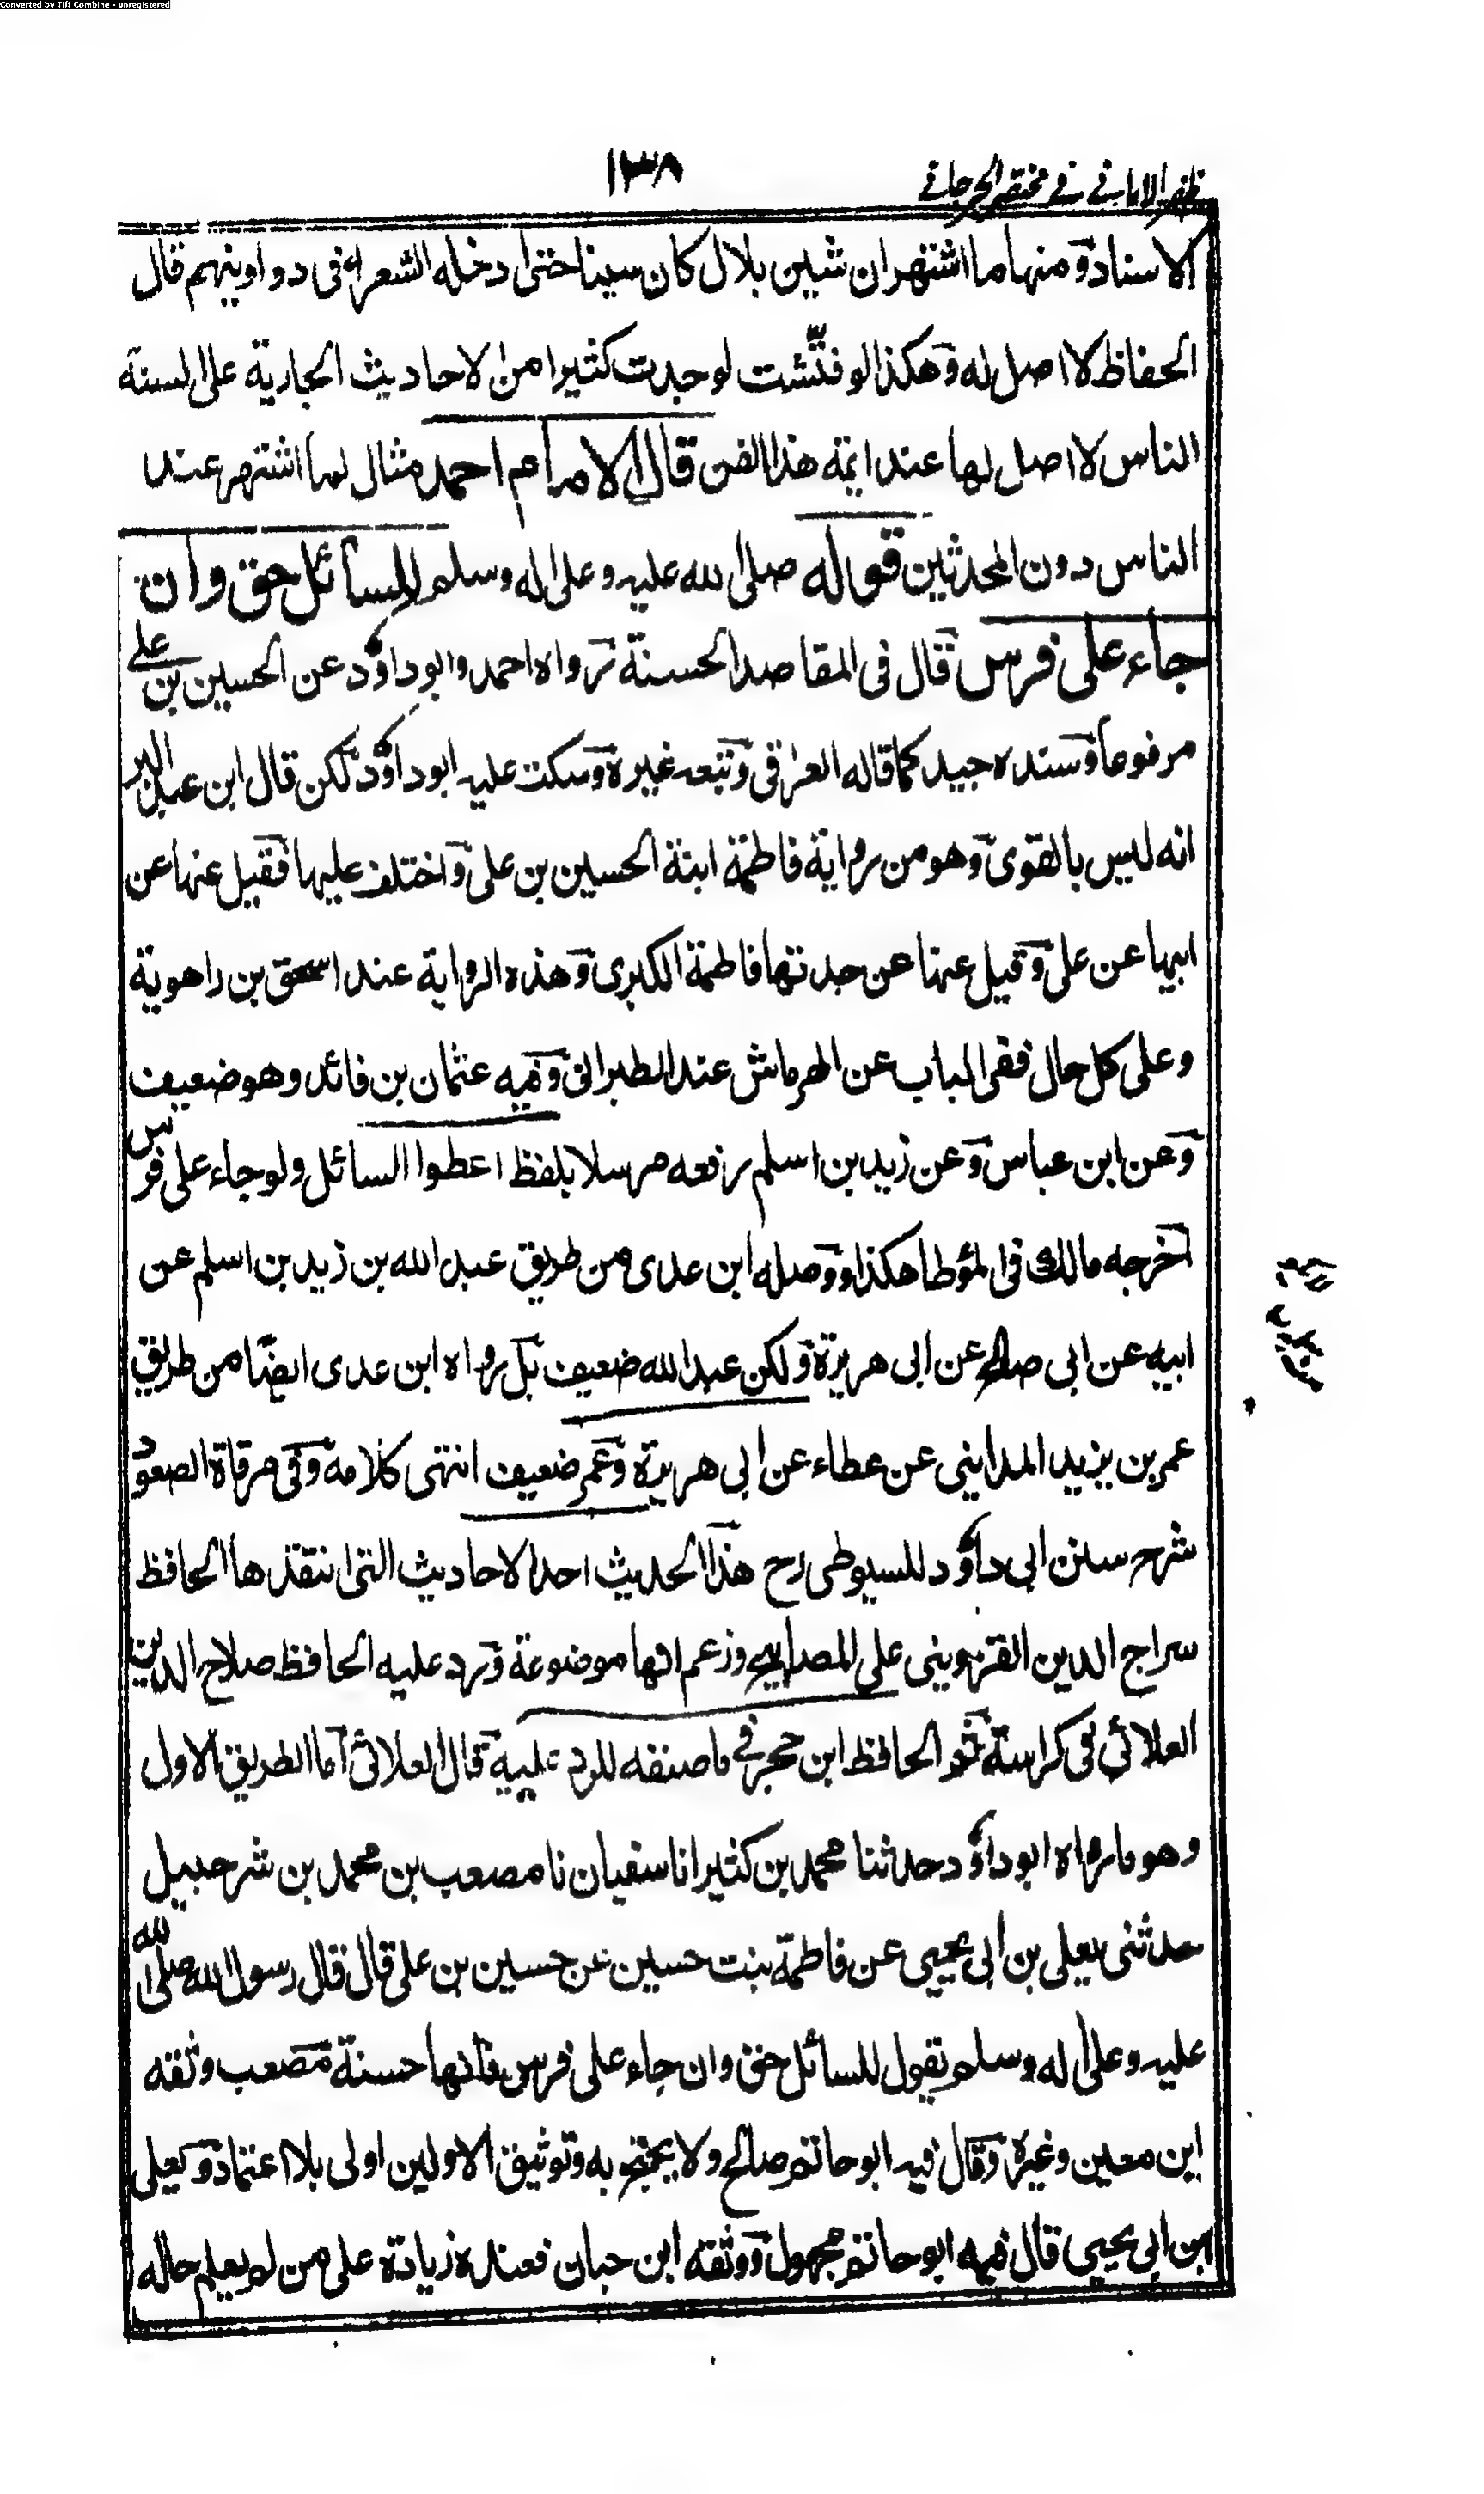 Converted by Tiff Combine - unregistered
ظفر الامانی فی مختصر الجرجانی
۱۳۸
الاسناد ومنها ما اشتهر ان شين بلال كان سينا حتى ادخله الشعراء فى دواوينهم قال
الحفاظ لا اصل له وهكذا لو فتّشت لوجدت كثيرا من الاحاديث الجارية على السنة
الناس لا اصل لها عند ائمة هذا الفن قال الامام احمد مثال لما اشتهر عند
الناس دون المحدثين قوله صلى الله عليه وعلى اله وسلم للسائل حق وان
جاء على فرس قال فى المقاصد الحسنة رواه احمد وابو داؤد عن الحسين بن على
مرفوعا وسنده جيد كما قاله العراقى وتبعه غيره وسكت عليه ابو داؤد لكن قال ابن عبد البر
انه ليس بالقوى وهو من رواية فاطمة ابنة الحسين بن على واختلف عليها فقيل عنها عن
ابيها عن على وقيل عنها عن جدتها فاطمة الكبرى وهذه الرواية عند اسحق بن راهوية
وعلى كل حال ففى الباب عن الهرماش عند الطبرانى وفيه عثمان بن فائد وهو ضعيف
وعن ابن عباس وعن زيد بن اسلم رفعه مرسلا بلفظ اعطوا السائل ولو جاء على فرس
اخرجه مالك فى المؤطا هكذا ووصله ابن عدى من طريق عبد الله بن زيد بن اسلم عن
ابيه عن ابى صالح عن ابى هريرة ولكن عبد الله ضعيف بل رواه ابن عدى ايضا من طريق
عمر بن يزيد المداينى عن عطاء عن ابى هريرة وعمر ضعيف انتهى كلامه وفى مرقاة الصعود
شرح سنن ابى داؤد للسيوطى رح هذا الحديث احد الاحاديث التى انتقدها الحافظ
سراج الدين القزوينى على المصابيح وزعم انها موضوعة ورد عليه الحافظ صلاح الدين
العلائى فى كراسة ثم الحافظ ابن حجر فى ما صنفه للرد عليه قال العلائى اما الطريق الاول
وهو ما رواه ابو داؤد حدثنا محمد بن كثير انا سفيان نا مصعب بن محمد بن شرحبيل
حدثنى يعلى بن ابى يحيى عن فاطمة بنت حسين عن حسين بن على قال قال رسول الله صلى الله
عليه وعلى اله وسلم يقول للسائل حق وان جاء على فرس فانها حسنة مصعب وثقه
ابن معين وغيره وقال فيه ابو حاتم صالح ولا يحتج به وتوثيق الاولين اولى بالاعتماد ويعلى
بن ابى يحيى قال فيه ابو حاتم مجهول ووثقه ابن حبان فعنده زيادة على من لم يعلم حاله